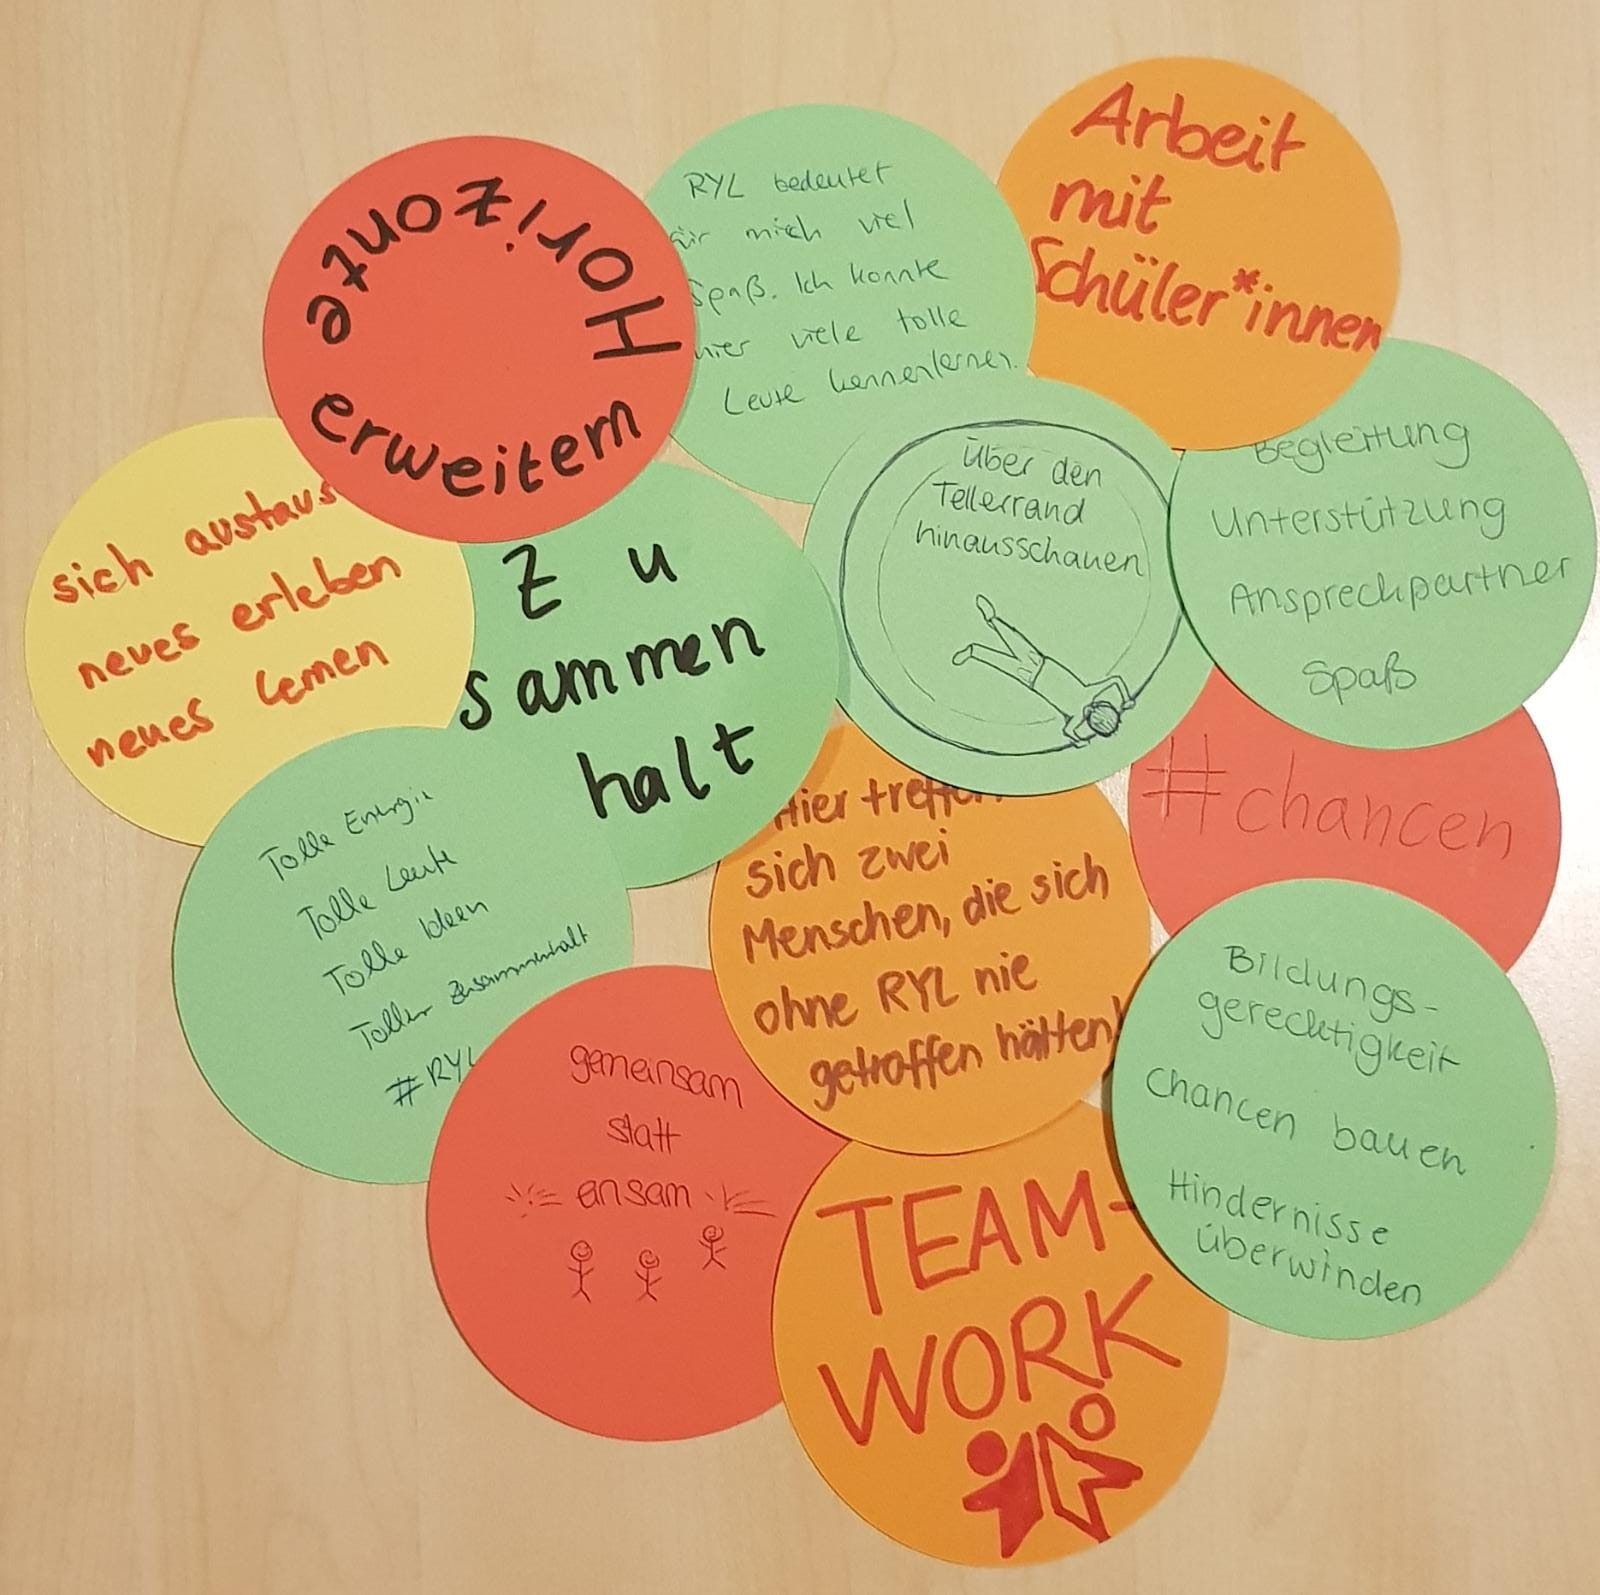 Horizonte
erweitern
RYL bedeutet
für mich viel
Spaß. Ich konnte
hier viele tolle
Leute kennenlernen.
Arbeit
mit
Schüler*innen
sich austaus
neues erleben
neues lernen
Zu
sammen
halt
Über den
Tellerrand
hinausschauen
Begleitung
Unterstützung
Ansprechpartner
Spaß
#chancen
Tolle Energie
Tolle Leute
Tolle Ideen
Toller Zusammenhalt
#RYL
Hier treffen
sich zwei
Menschen, die sich
ohne RYL nie
getroffen hätten!
Bildungs-
gerechtigkeit
Chancen bauen
Hindernisse
überwinden
gemeinsam
statt
einsam
TEAM-
WORK